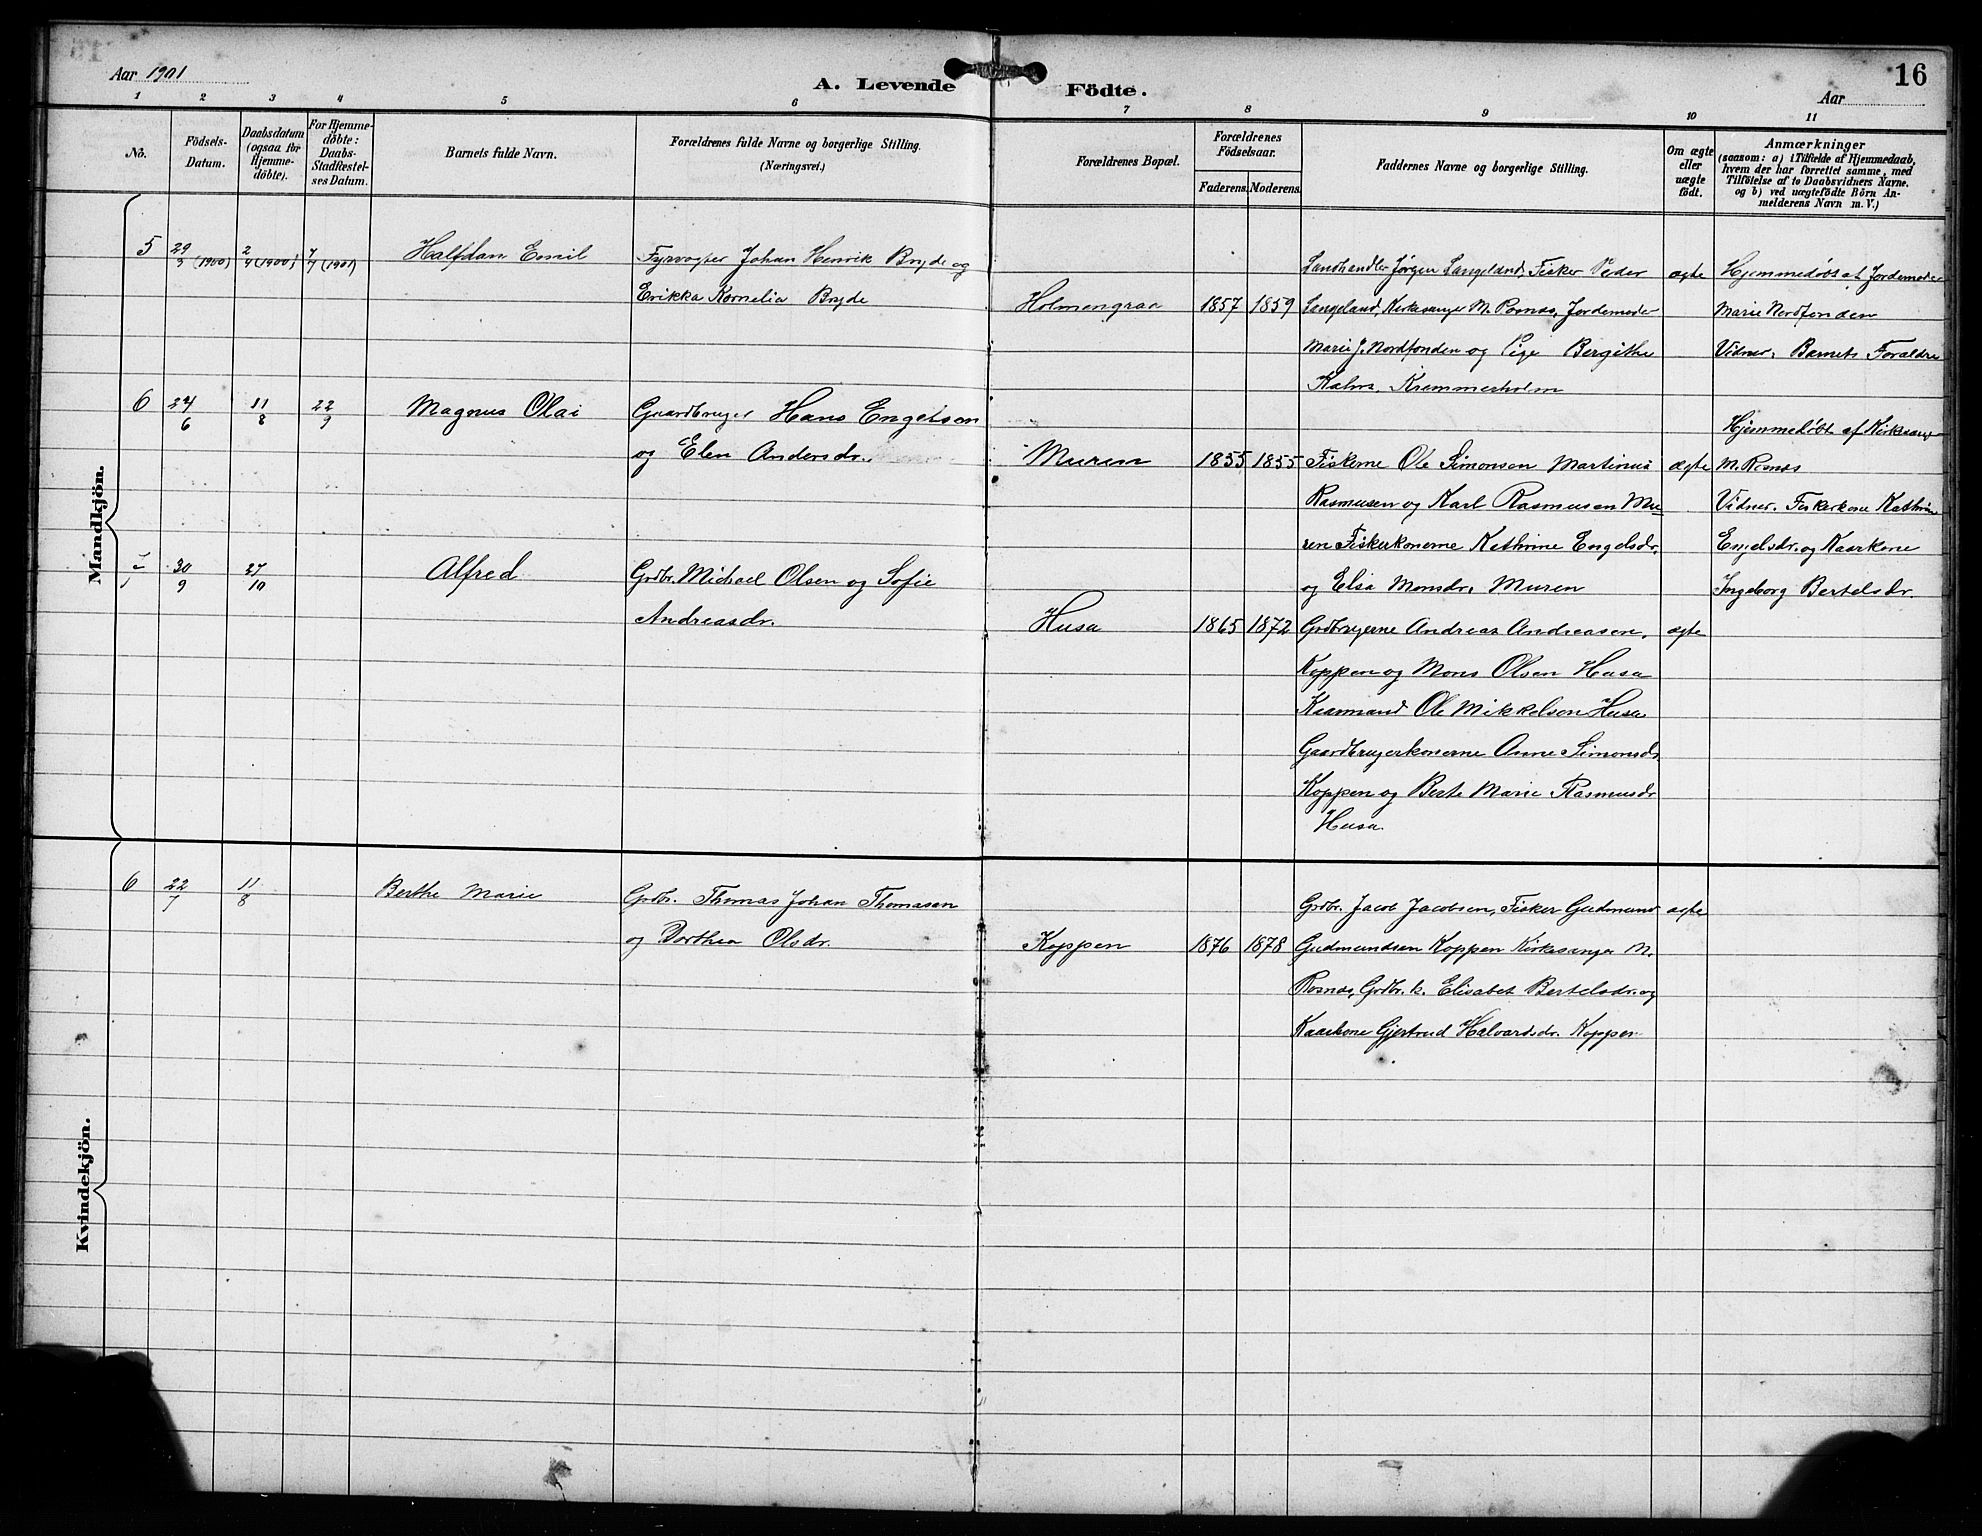 Aar 1901
A. Levende Födte.
Aar
16
1 2 3 4 5 6 7 8 9 10 11
No.
Födsels-
Datum.
Daabsdatum
(ogsaa for
Hjemme-
døbte).
For Hjemme-
döbte:
Daabs-
Stadfæstel-
ses Datum.
Barnets fulde Navn.
Forældrenes fulde Navne og borgerlige Stilling.
(Næringsvei.)
Forældrenes Bopæl.
Forældrenes
Födselsaar.
Faderens.
Moderens.
Faddernes Navne og borgerlige Stilling.
Om ægte
eller
uægte
födt.
Anmærkninger
(saasom: a) i Tilfælde af Hjemmedaab,
hvem der har forrettet samme, med
Tilföielse af to Daabsvidners Navne,
og b) ved uægtefödte Börn An-
melderens Navn m. V.)
Mandkjön.
5
29/3 (1900)
2/4 (1900)
7/7 (1901)
Halfdan Emil
Fyrvogter Johan Henrik Bryde og
Erikka Kornelia Bryde
Holmengraa
1857
1859
Landhandler Jørgen Langeland, Fisker Peder
Langeland, Kirkesanger M. Rosnæs, Jordemoder
Marie J. Nordfonden og Pige Bergithe
Kalnes, Kremmerholm
ægte
Hjemmedøbt af Jordemoder
Marie Nordfonden
Vidner. Barnets Forældre
6
24/6
11/8
22/9
Magnus Olai
Gaardbruger Hans Engelsen
og Elen Andersdr.
Muren
1855
1855
Fiskerne Ole Simonsen Martinus
Rasmusen og Karl Rasmusen Mu-
ren Fiskerkonerne Kathrine Engelsdr.
og Elsa Monsdr, Muren
ægte
Hjemmedøbt af Kirkesang
M. Rosnæs
Vidner. Fiskerkone Kathrine
Engelsdr. og Kaarkone
Ingeborg Bertelsdr.
7
30/9
27/10
Alfred
Grdbr. Michael Olsen og Sofie
Andreasdr.
Husa
1865
1872
Grdbrugerne Andreas Andreasen,
Koppen og Mons Olsen Husa
Kaarmand Ole Mikkelsen Husa
Gaardbrugerkonerne Anne Simonsdr
Koppen og Berte Marie Rasmusdr
Husa
ægte
Kvindekjön.
6
22/7
11/8
Berthe Marie
Grdbr. Thomas Johan Thomasen
og Dorthea Olsdr.
Koppen
1876
1878
Grdbr. Jacob Jacobsen, Fisker Gudmund
Gudmundsen Koppen Kirkesanger M.
Rosnæs, Grdbr. k. Elisabet Bertelsdr. og
Kaarkone Gjertrud Halvardsdr. Koppen
ægte